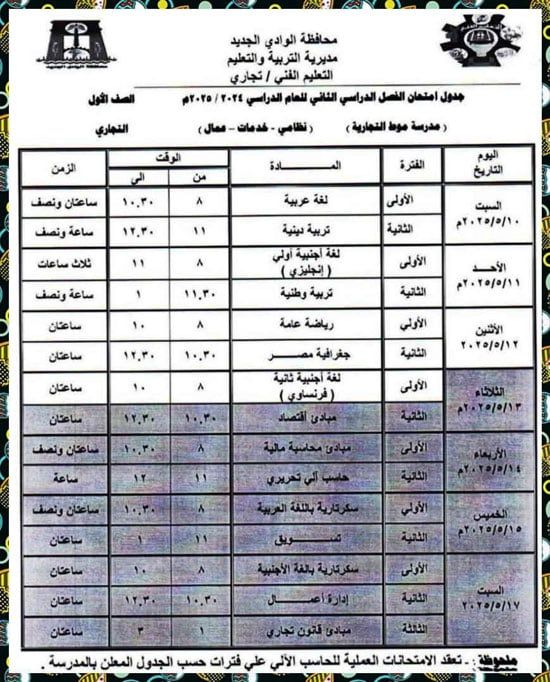 محافظة الوادي الجديد
مديرية التربية والتعليم
التعليم الفني / تجاري
جدول امتحان الفصل الدراسي الثاني للعام الدراسي ٢٠٢٤ / ٢٠٢٥م الصف الأول
( مدرسة موط التجارية ) ( نظامي - خدمات - عمال ) التجاري
اليوم التاريخ الفترة المـــادة الوقت من الى الزمن
السبت ٢٠٢٥/٥/١٠م الأولى لغة عربية ٨ ١٠.٣٠ ساعتان ونصف
الثانية تربية دينية ١١ ١٢.٣٠ ساعة ونصف
الأحد ٢٠٢٥/٥/١١م الأولى لغة أجنبية أولي ( إنجليزي ) ٨ ١١ ثلاث ساعات
الثانية تربية وطنية ١١.٣٠ ١ ساعة ونصف
الأثنين ٢٠٢٥/٥/١٢م الأولي رياضة عامة ٨ ١٠ ساعتان
الثانية جغرافية مصر ١٠.٣٠ ١٢.٣٠ ساعتان
الثلاثاء ٢٠٢٥/٥/١٣م الأولى لغة أجنبية ثانية ( فرنساوي ) ٨ ١٠ ساعتان
الثانية مبادئ أقتصاد ١٠.٣٠ ١٢.٣٠ ساعتان
الأربعاء ٢٠٢٥/٥/١٤م الأولى مبادئ محاسبة مالية ٨ ١٠.٣٠ ساعتان ونصف
الثانية حاسب ألي تحريري ١١ ١٢ ساعة
الخميس ٢٠٢٥/٥/١٥م الأولى سكرتارية باللغة العربية ٨ ١٠.٣٠ ساعتان ونصف
الثانية تسـويق ١١ ١ ساعتان
السبت ٢٠٢٥/٥/١٧م الأولى سكرتارية بالغة الأجنبية ٨ ١٠ ساعتان
الثانية إدارة أعمـــال ١٠.٣٠ ١٢.٣٠ ساعتان
الثالثة مبادئ قانون تجاري ١ ٣ ساعتان
ملحوظة :- تعقد الامتحانات العملية للحاسب الألي علي فترات حسب الجدول المعلن بالمدرسة .